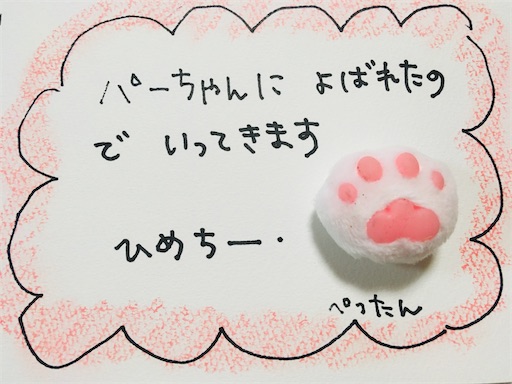 パーちゃんに よばれたの
で いってきます
ひめちー.
ぺったん